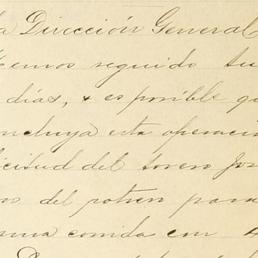 la Dirección General
emos seguido tu
días, & es posible qu
ncluya esta operació
icitud del
os del potrero para
sma comida con